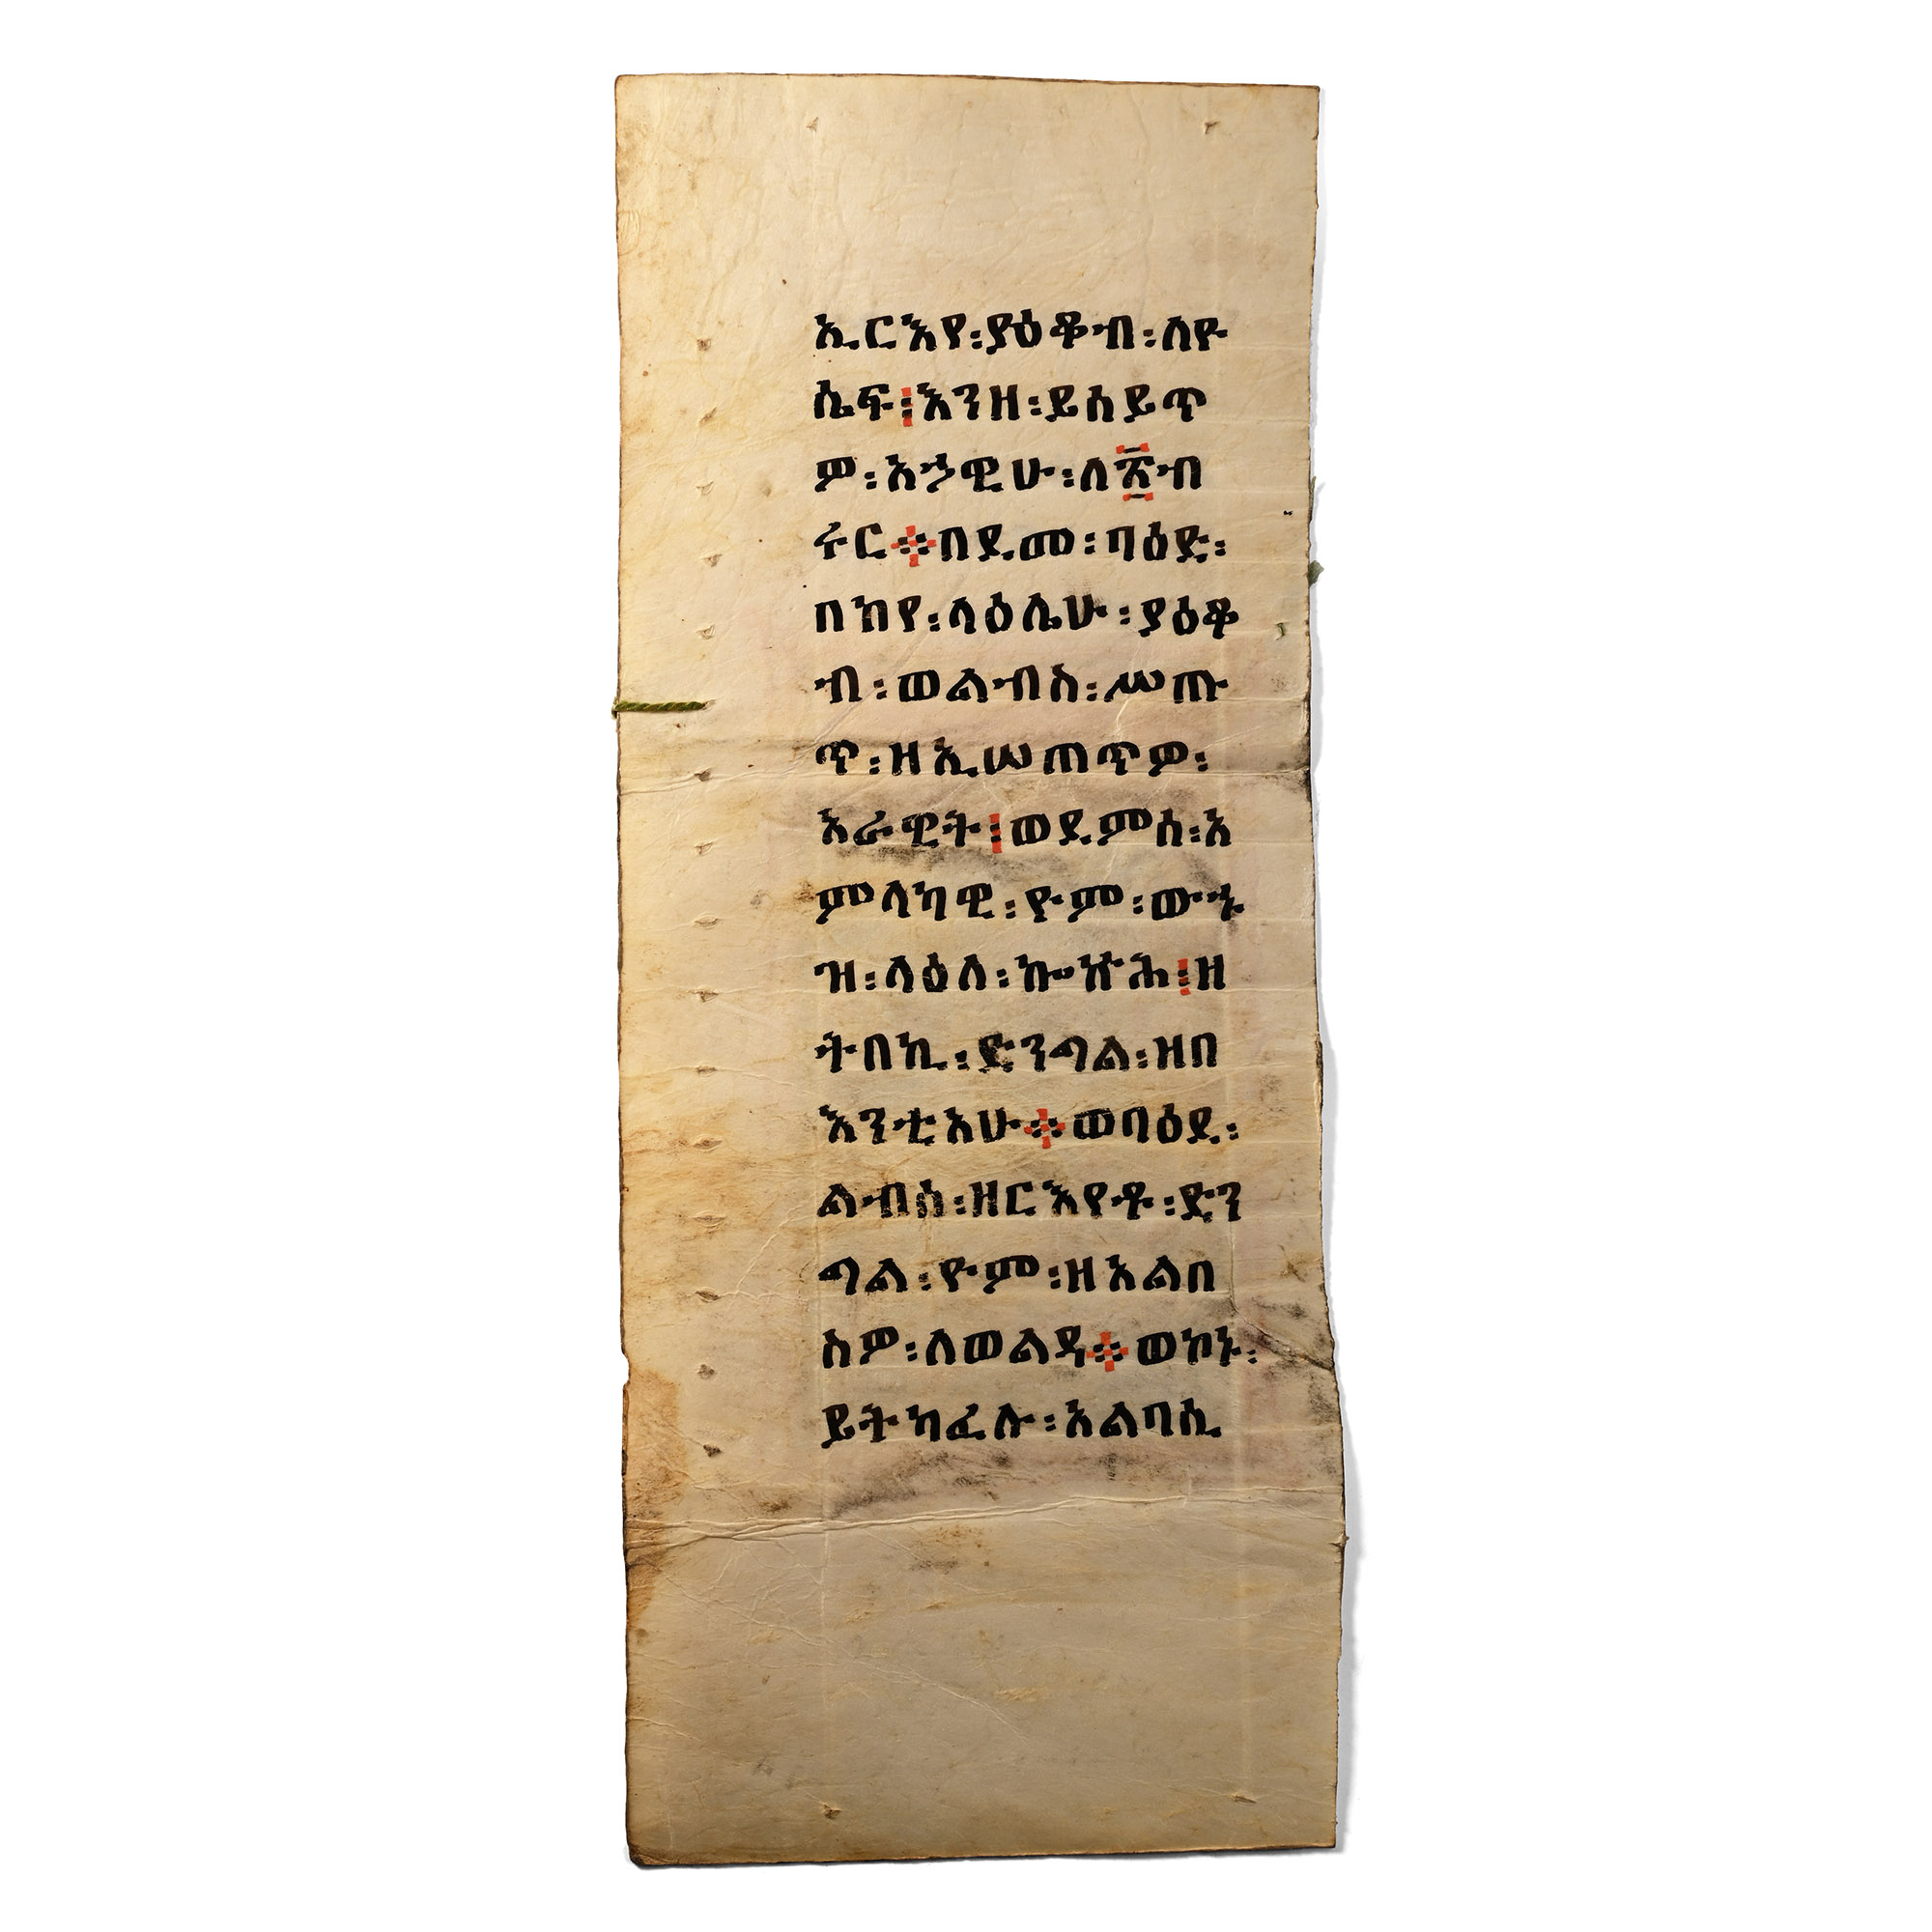 ኢርእየ፡ያዕቆብ፡ለዮ
ሴፍ፤እንዘ፡ይሰይጥ
ዎ፡አኃዊሁ፡ለ፳ብ
ሩር።በደመ፡ባዕድ፡
በከየ፡ላዕሌሁ፡ያዕቆ
ብ፡ወልብስ፡ሥጡ
ጥ፡ዘኢሠጠጥዎ፡
አራዊት፤ወደምሰ፡አ
ምላካዊ፡ዮም፡ውኁ
ዝ፡ላዕለ፡ኰኵሕ፤ዘ
ትበኪ፡ድንግል፡ዝበ
እንቲአሁ።ወባዕደ፡
ልብሰ፡ዘርእየቶ፡ድን
ግል፡ዮም፡ዘአልበ
ስዎ፡ለወልዳ።ወኮኑ፡
ይትካፈሉ፡አልባሲ